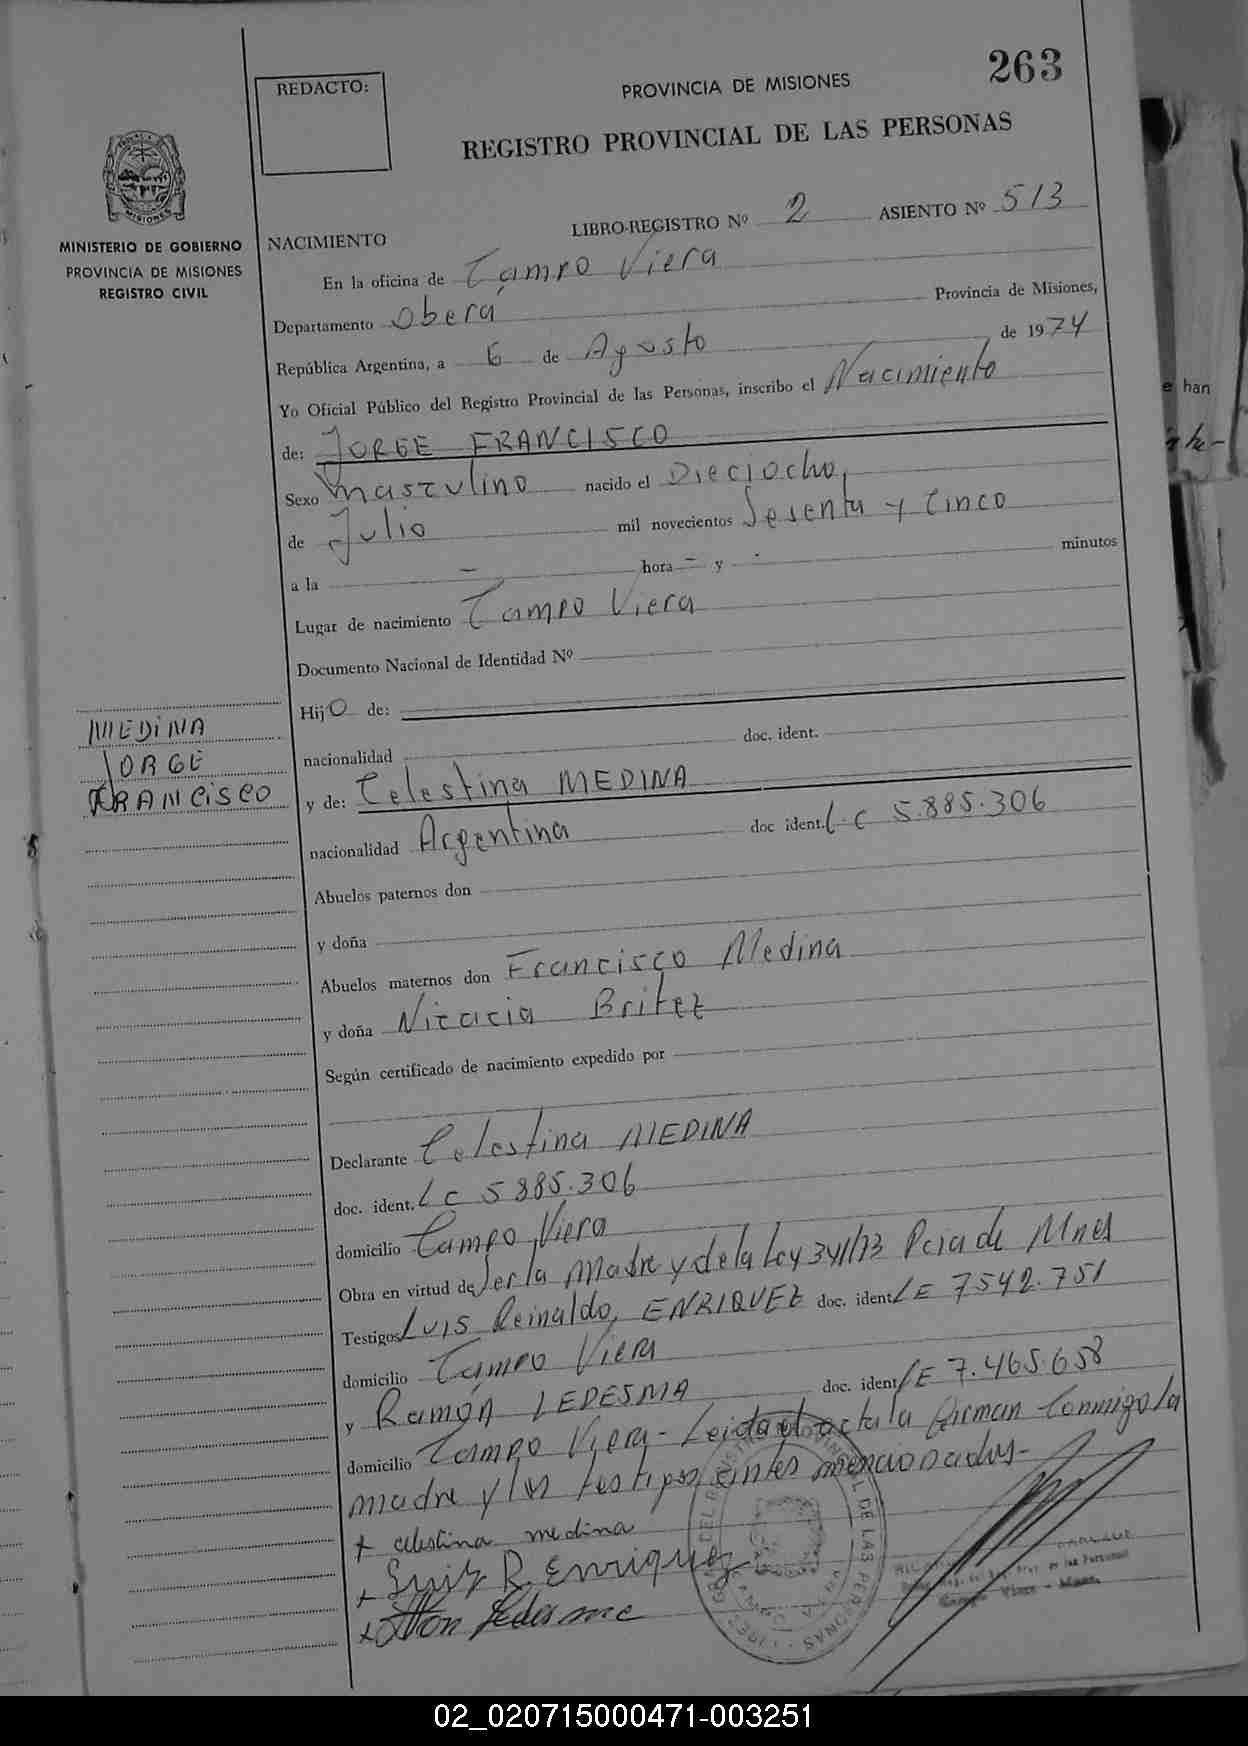 263
REDACTO:
PROVINCIA DE MISIONES
REGISTRO PROVINCIAL DE LAS PERSONAS
MISIONES
MINISTERIO DE GOBIERNO
PROVINCIA DE MISIONES
REGISTRO CIVIL
NACIMIENTO
LIBRO-REGISTRO Nº 2 ASIENTO Nº 513
En la oficina de Campo Viera
Departamento Oberá Provincia de Misiones,
República Argentina, a 6 de Agosto de 1974
Yo Oficial Público del Registro Provincial de las Personas, inscribo el Nacimiento
de: JORGE FRANCISCO
Sexo masculino nacido el Dieciocho,
de Julio mil novecientos Sesenta y Cinco
a la - hora - y - minutos
Lugar de nacimiento Campo Viera
Documento Nacional de Identidad Nº
Hijo de:
nacionalidad doc. ident.
y de: Celestina MEDINA
nacionalidad Argentina doc ident. L C 5.885.306
MEDINA
JORGE
FRANCISCO
Abuelos paternos don
y doña
Abuelos maternos don Francisco Medina
y doña Nicacia Britez
Según certificado de nacimiento expedido por
Declarante Celestina MEDINA
doc. ident. L C 5 885.306
domicilio Campo Viera
Obra en virtud de Ser la Madre y de la Ley 341/73 Pcia de Mnes
Testigos LUIS Reinaldo, ENRIQUEZ doc. ident L E 7542.751
domicilio Campo Viera
y Ramón LEDESMA doc. ident L E 7.465.658
domicilio Campo Viera - Leida el acta la firman Conmigo la
madre y los testigos antes mencionados -
+ celestina medina
+ Luis R. Enriquez
+ Ledesme
e han
02_020715000471-003251